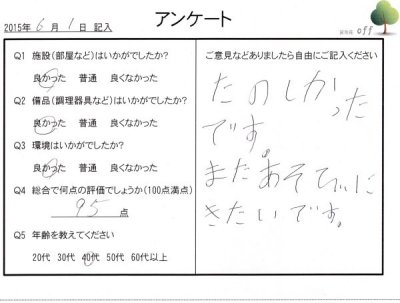 アンケート
2015年 6月 1日 記入
off
Q1 施設(部屋など)はいかがでしたか?
良かった 普通 良くなかった
Q2 備品(調理器具など)はいかがでしたか?
良かった 普通 良くなかった
Q3 環境はいかがでしたか?
良かった 普通 良くなかった
Q4 総合で何点の評価でしょうか(100点満点)
95 点
Q5 年齢を教えてください
20代 30代 40代 50代 60代以上
ご意見などありましたら自由にご記入ください
たのしかった
です。
またあそびに
きたいです。